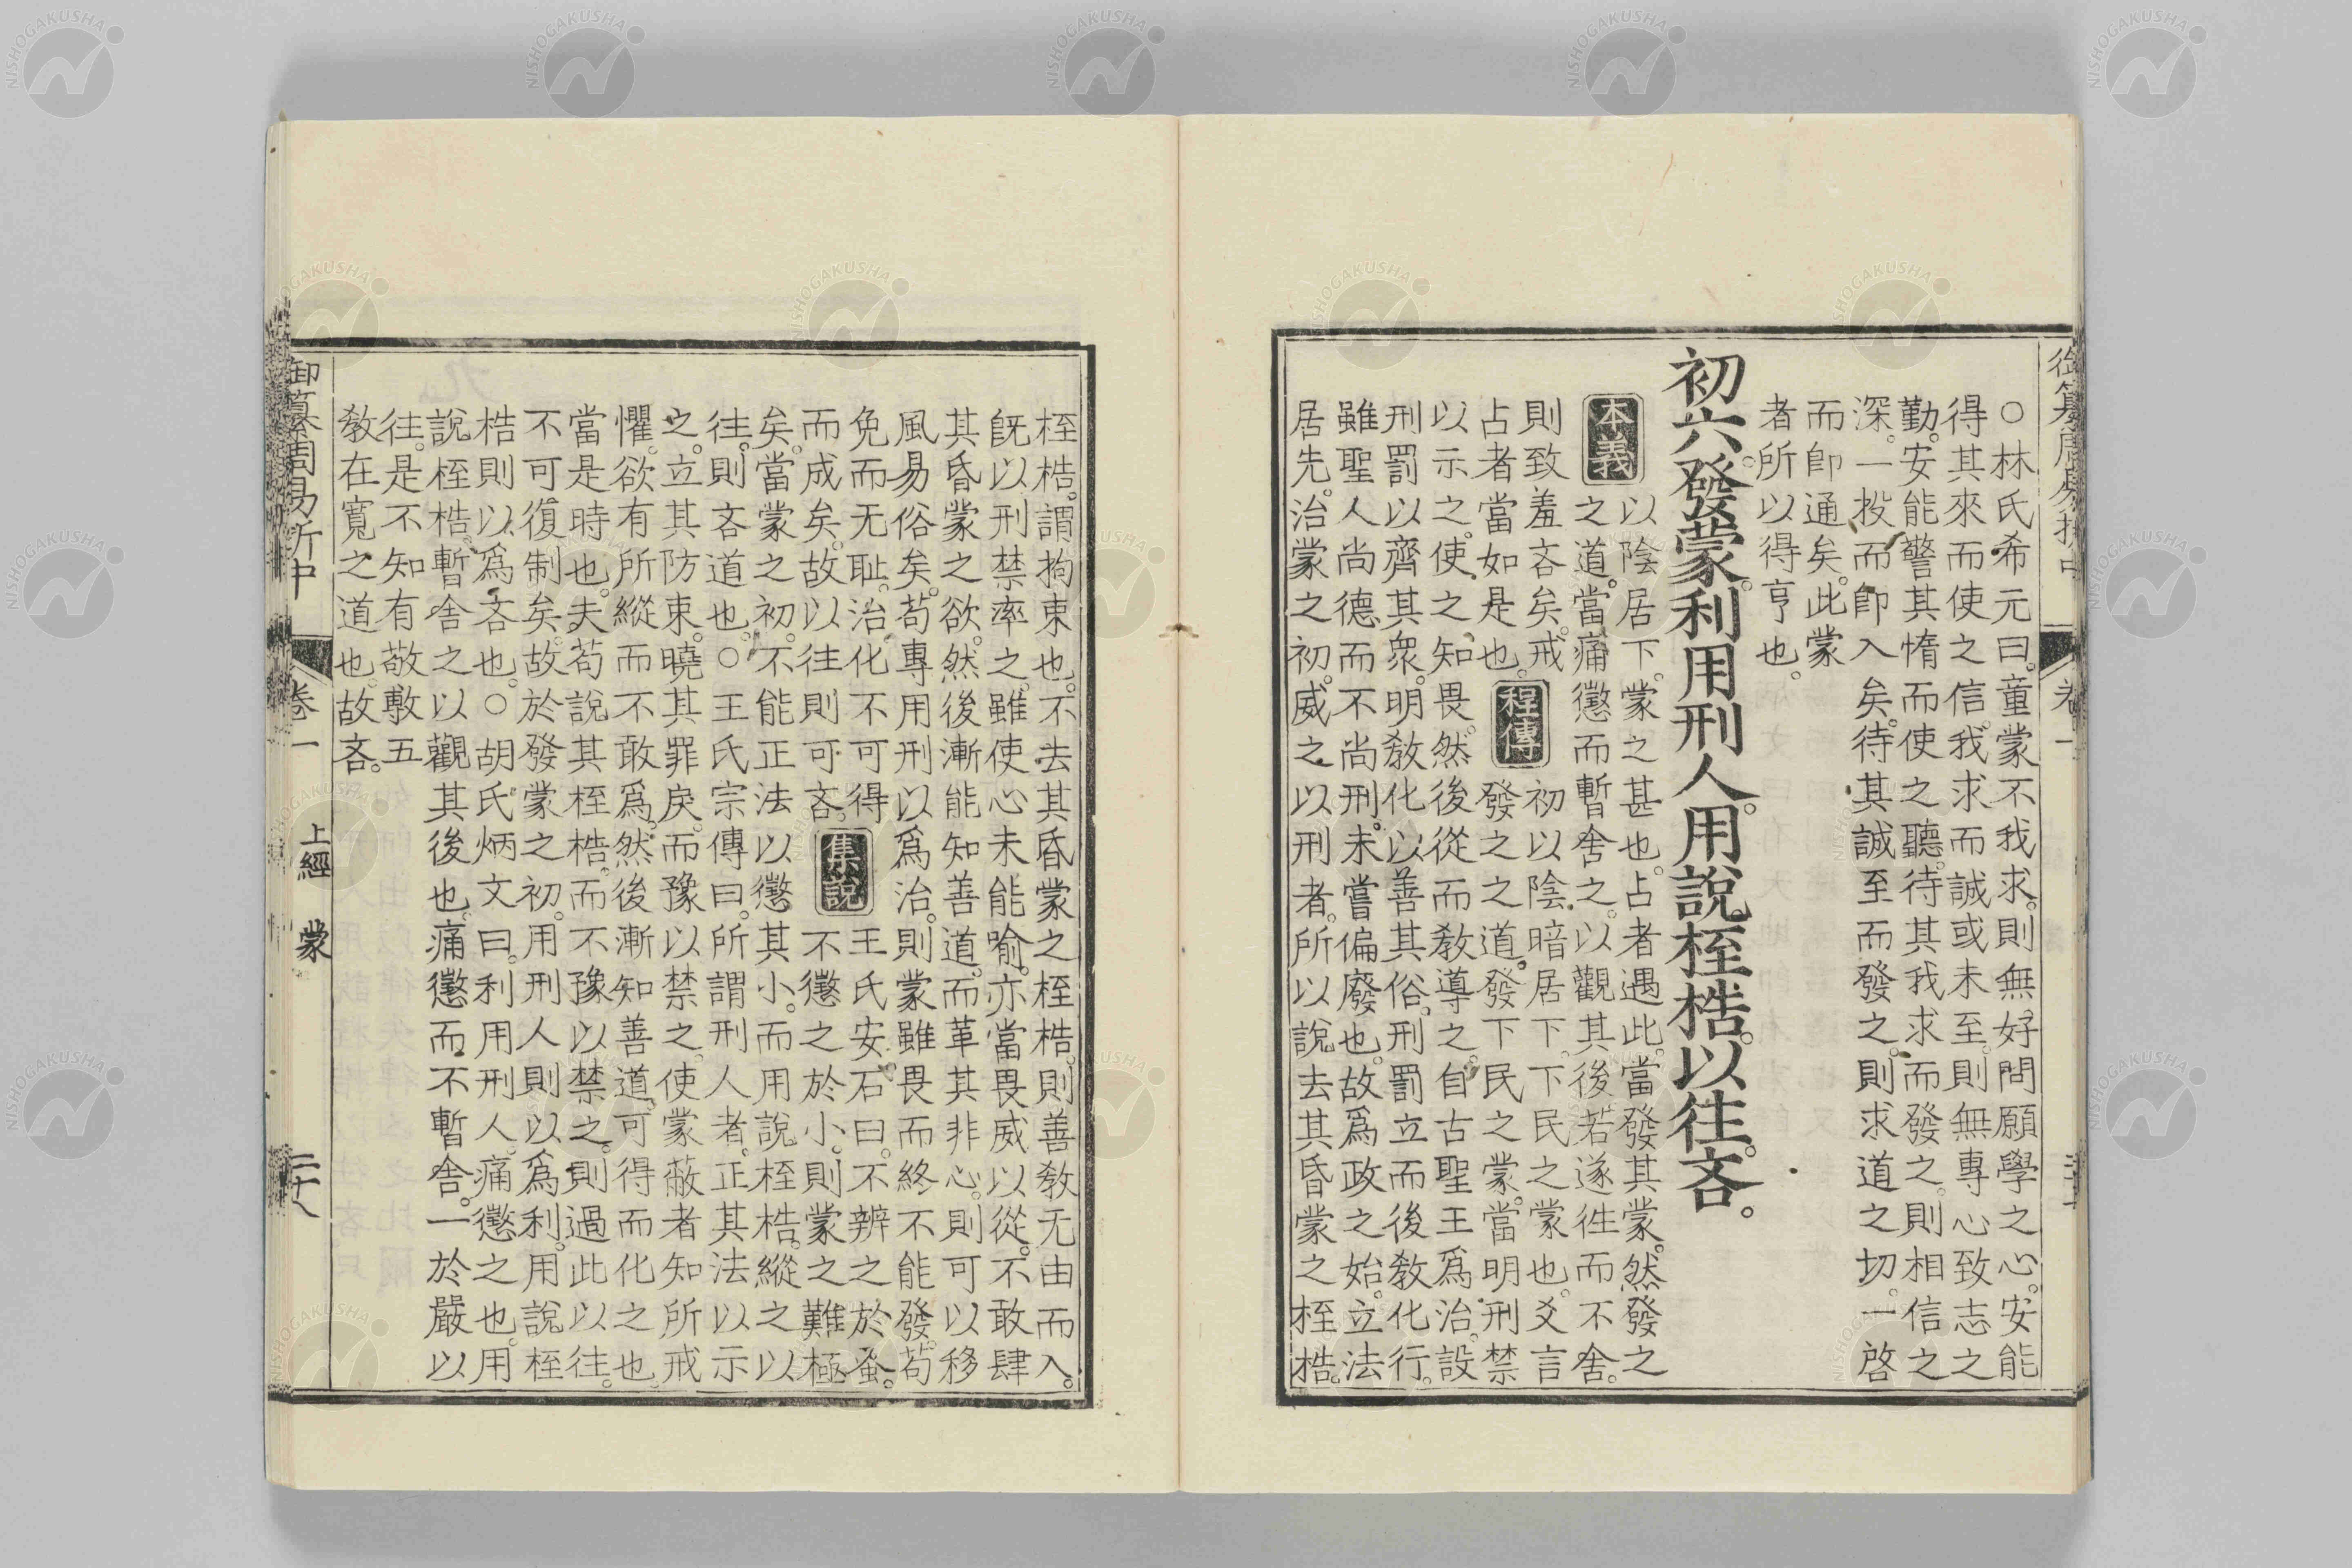 ○林氏希元曰。童蒙不我求。則無好問願學之心。安能
得其來而使之信。我求而誠或未至。則無專心致志之
勤。安能警其惰而使之聽。待其我求而發之。則相信之
深。一投而卽入矣。待其誠至而發之。則求道之切。一啓
而卽通矣。此蒙
者所以得亨也。
初六。發蒙。利用刑人。用說桎梏。以往吝。
本義
以陰居下。蒙之甚也。占者遇此。當發其蒙。然發之
之道。當痛懲而暫舍之。以觀其後。若遂徃而不舍。
則致羞吝矣。戒
占者當如是也。
程傳
初以陰暗居下。下民之蒙也。爻言
發之之道。發下民之蒙。當明刑禁
以示之。使之知畏。然後從而敎導之。自古聖王爲治。設
刑罰以齊其衆。明敎化以善其俗。刑罰立而後敎化行。
雖聖人尚德而不尚刑。未嘗偏廢也。故爲政之始。立法
居先。治蒙之初。威之以刑者。所以說去其昏蒙之桎梏。
桎梏。謂拘束也。不去其昏蒙之桎梏。則善敎无由而入。
旣以刑禁率之。雖使心未能喻。亦當畏威以從。不敢肆
其昏蒙之欲。然後漸能知善道。而革其非心。則可以移
風易俗矣。苟專用刑以爲治。則蒙雖畏而終不能發。苟
免而无恥。治化不可得
而成矣。故以往則可吝。
集說
王氏安石曰。不辨之於蚤。
不懲之於小。則蒙之難極
矣。當蒙之初。不能正法以懲其小。而用說桎梏。縱之以
往。則吝道也。○王氏宗傳曰。所謂刑人者。正其法以示
之。立其防束。曉其罪戾。而豫以禁之。使蒙蔽者知所戒
懼。欲有所縱而不敢爲。然後漸知善道。可得而化之也。
當是時也。夫苟說其桎梏。而不豫以禁之。則過此以往。
不可復制矣。故於發蒙之初。用刑人則以爲利。用說桎
梏則以爲吝也。○胡氏炳文曰。利用刑人。痛懲之也。用
說桎梏。暫舍之以觀其後也。痛懲而不暫舍。一於嚴以
往。是不知有敬敷五
敎在寬之道也。故吝。
御纂周易折中 卷一 上經 蒙 二十八